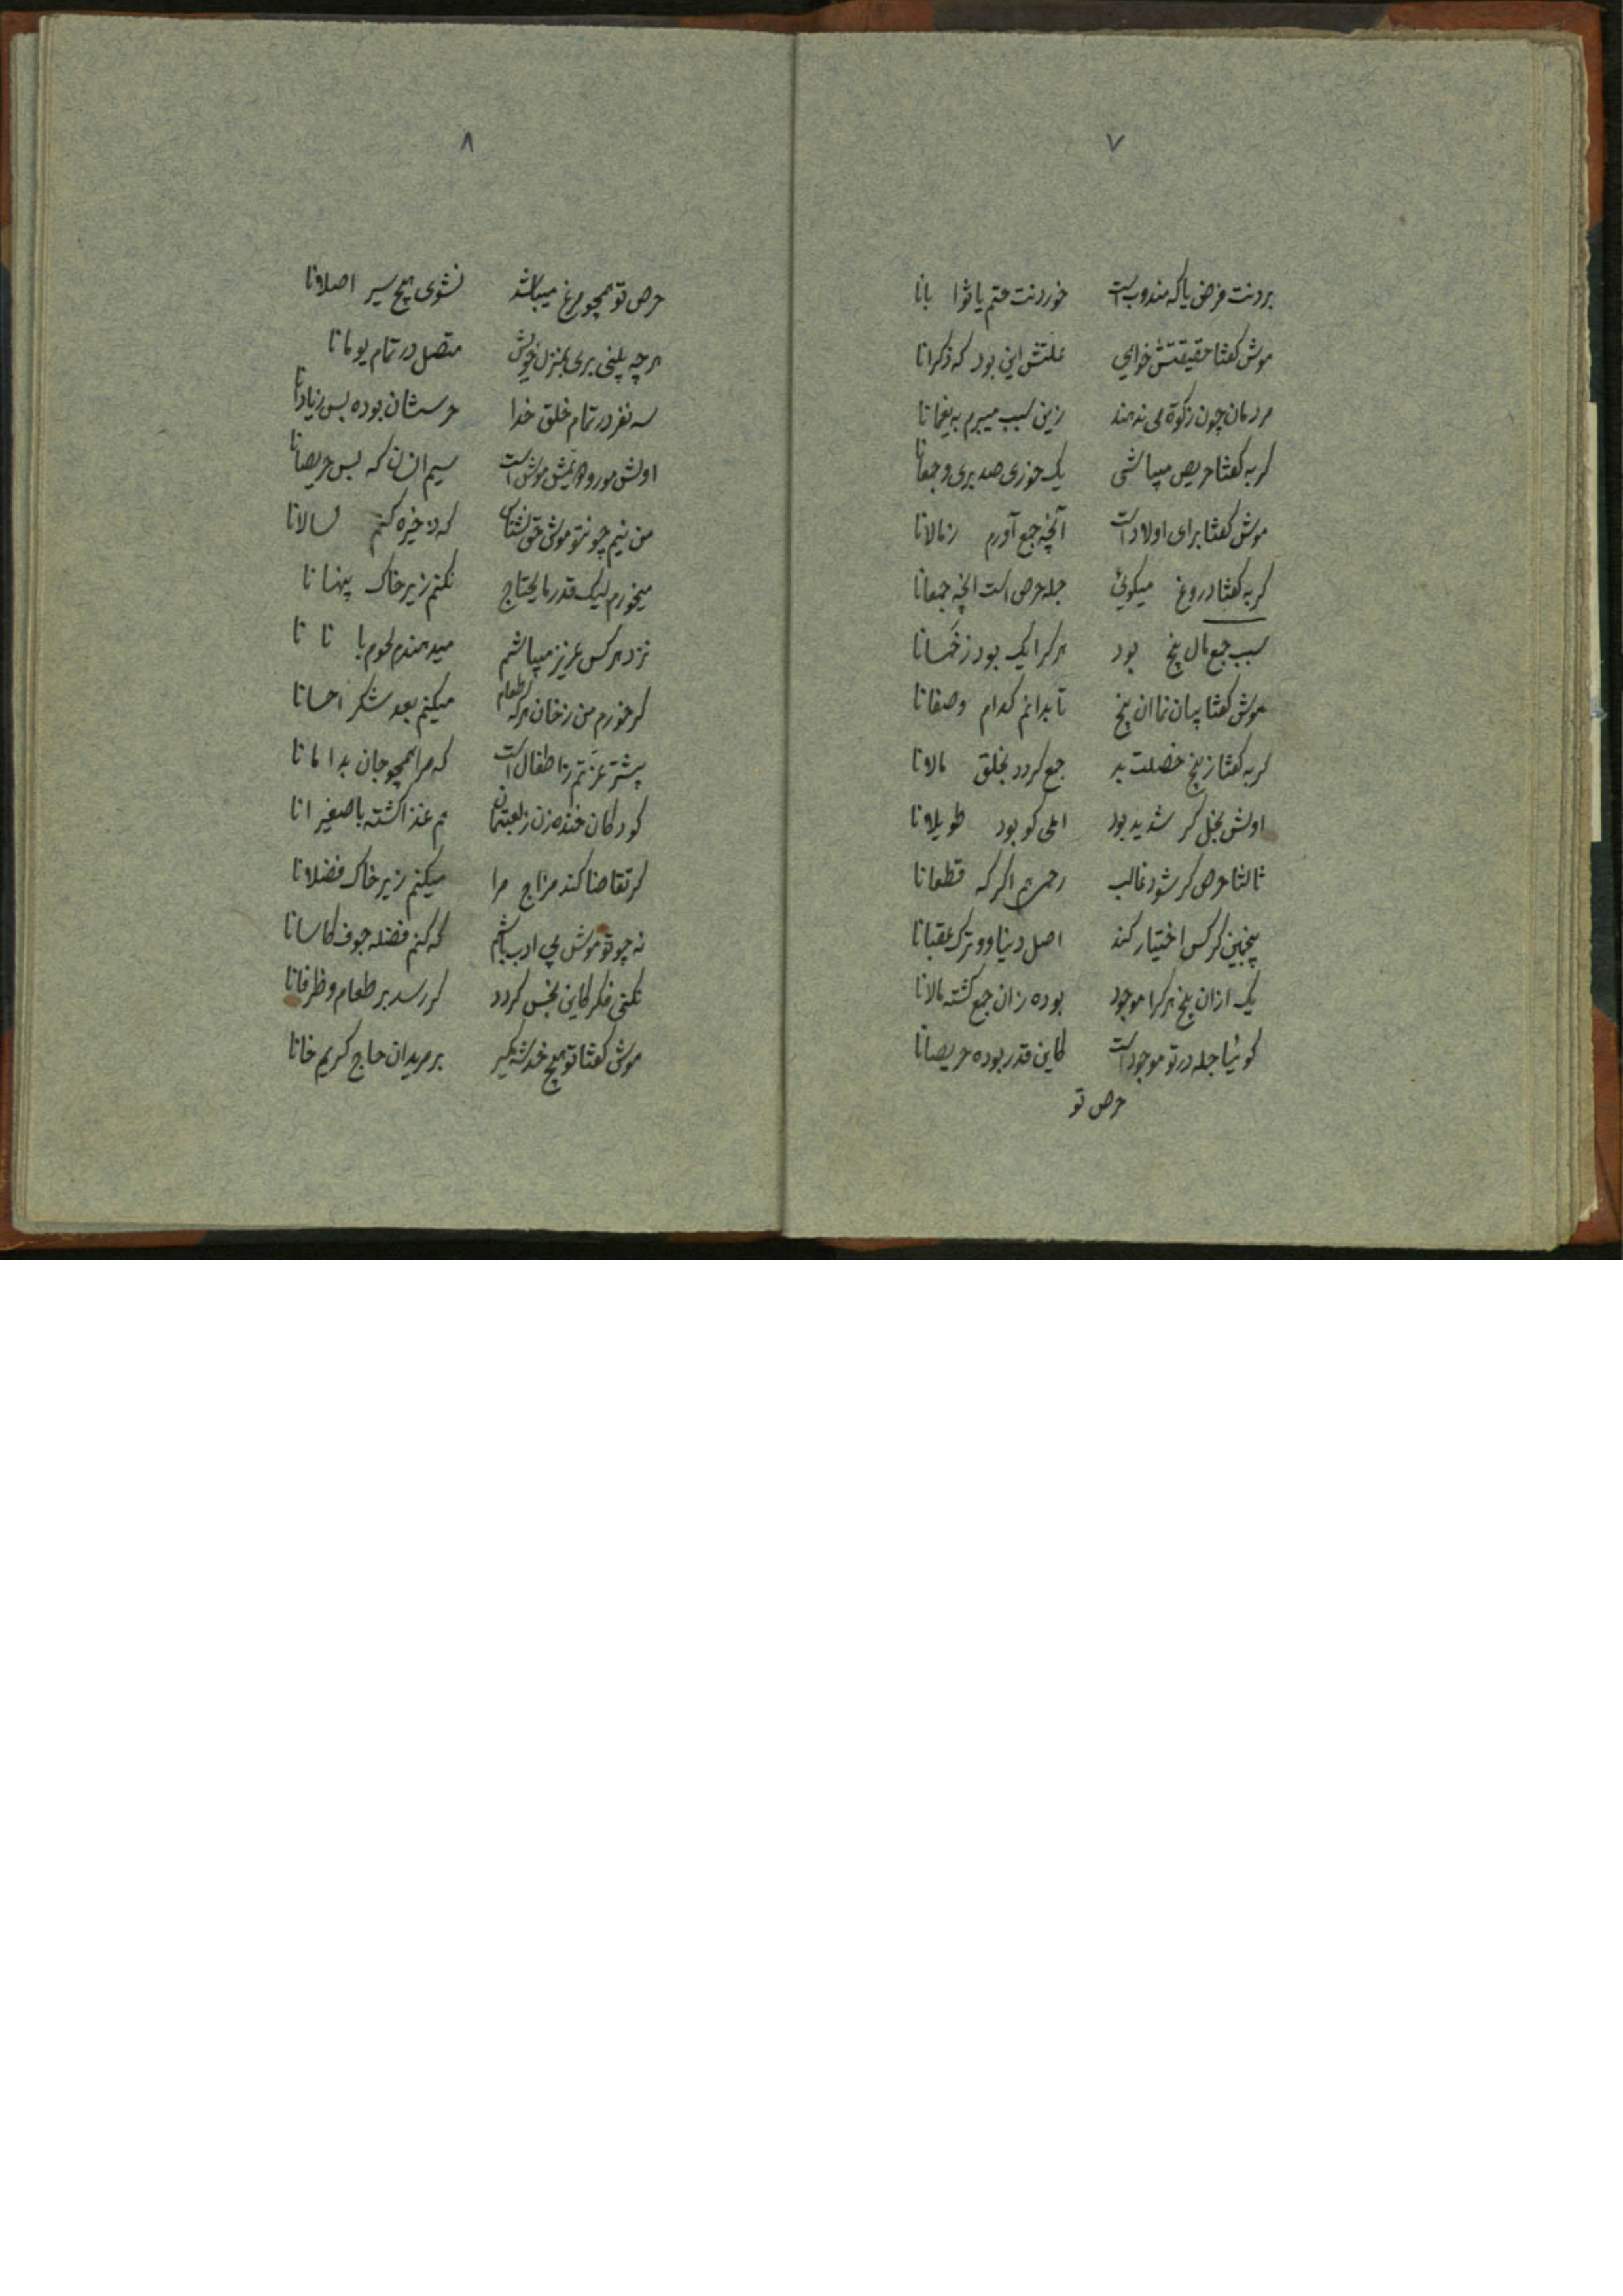 ۷
بردنت فرض یا که مندوبست خوردنت حتم یا ثوا بانا
موش کفتا حقیقتش خواهی علتش این بود که ذکرانا
مردمان چون زکوة می ندهند زین سبب میبرم به یغمانا
کربه کفتا حریص میباشی یک خوری صد بری و جمعانا
موش کفتا برای اولاد است آنچه جمع آورم زمالانا
کربه کفتا دروغ میکوئی جمله حرص است انچه جمعانا
سبب جمع مال پنج بود هر کرا یک بود ز خمسانا
موش کفتا بیان نما ان پنج تا بدانم کدام وصفانا
کربه کفتا ز پنج خصلت بد جمع کردد بخلق مالانا
اولش بخل کر شدید بود املی کو بود طویلانا
ثالثا حرص کر شود غالب رحم هم اکر که قطعانا
پنجمین کر کس اختیار کند اصل دنیا و ترک عقبانا
یک ازان پنج هر کرا موجود بوده زان جمع کشته مالانا
کوئیا جمله در تو موجود است کاین قدر بوده حریصانا
حرص تو
۸
حرص تو همچو مرغ میباشد نشوی هیچ سیر اصلانا
هر چه بینی بری بمنزل خویش متصل در تمام یومانا
سه نفر در تمام خلق خدا حرسشان بوده بس زیادانا
اولش مور و دویمش موش است سیم انسان که بس حریصانا
من نیم چونتو موش حق نشناس که ذخیره کنم لسالانا
میخورم لیک قدر مایحتاج نکنم زیر خاک پنهانا
نزد هر کس عزیز میباشم میدهندم لحوم با نا نا
کر خورم من ز خان هر که طعام میکنم بعد شکر احسانا
بیشتر عزتم ز اطفال است که مرا همچو جان بدامانا
کودکان خنده زن ز لعبتمان هم غذا کشته با صغیرانا
کر تقاضا کند مزاج مرا میکنم زیر خاک فضلانا
نه چو تو موش بی ادب باشم که کنم فضله جوف کاسانا
نکنی فکر کاین نجس کردد کر رسد بر طعام و ظرفانا
موش کفتا تو هیچ خدشه مکیر بر مریدان حاج کریم خانا